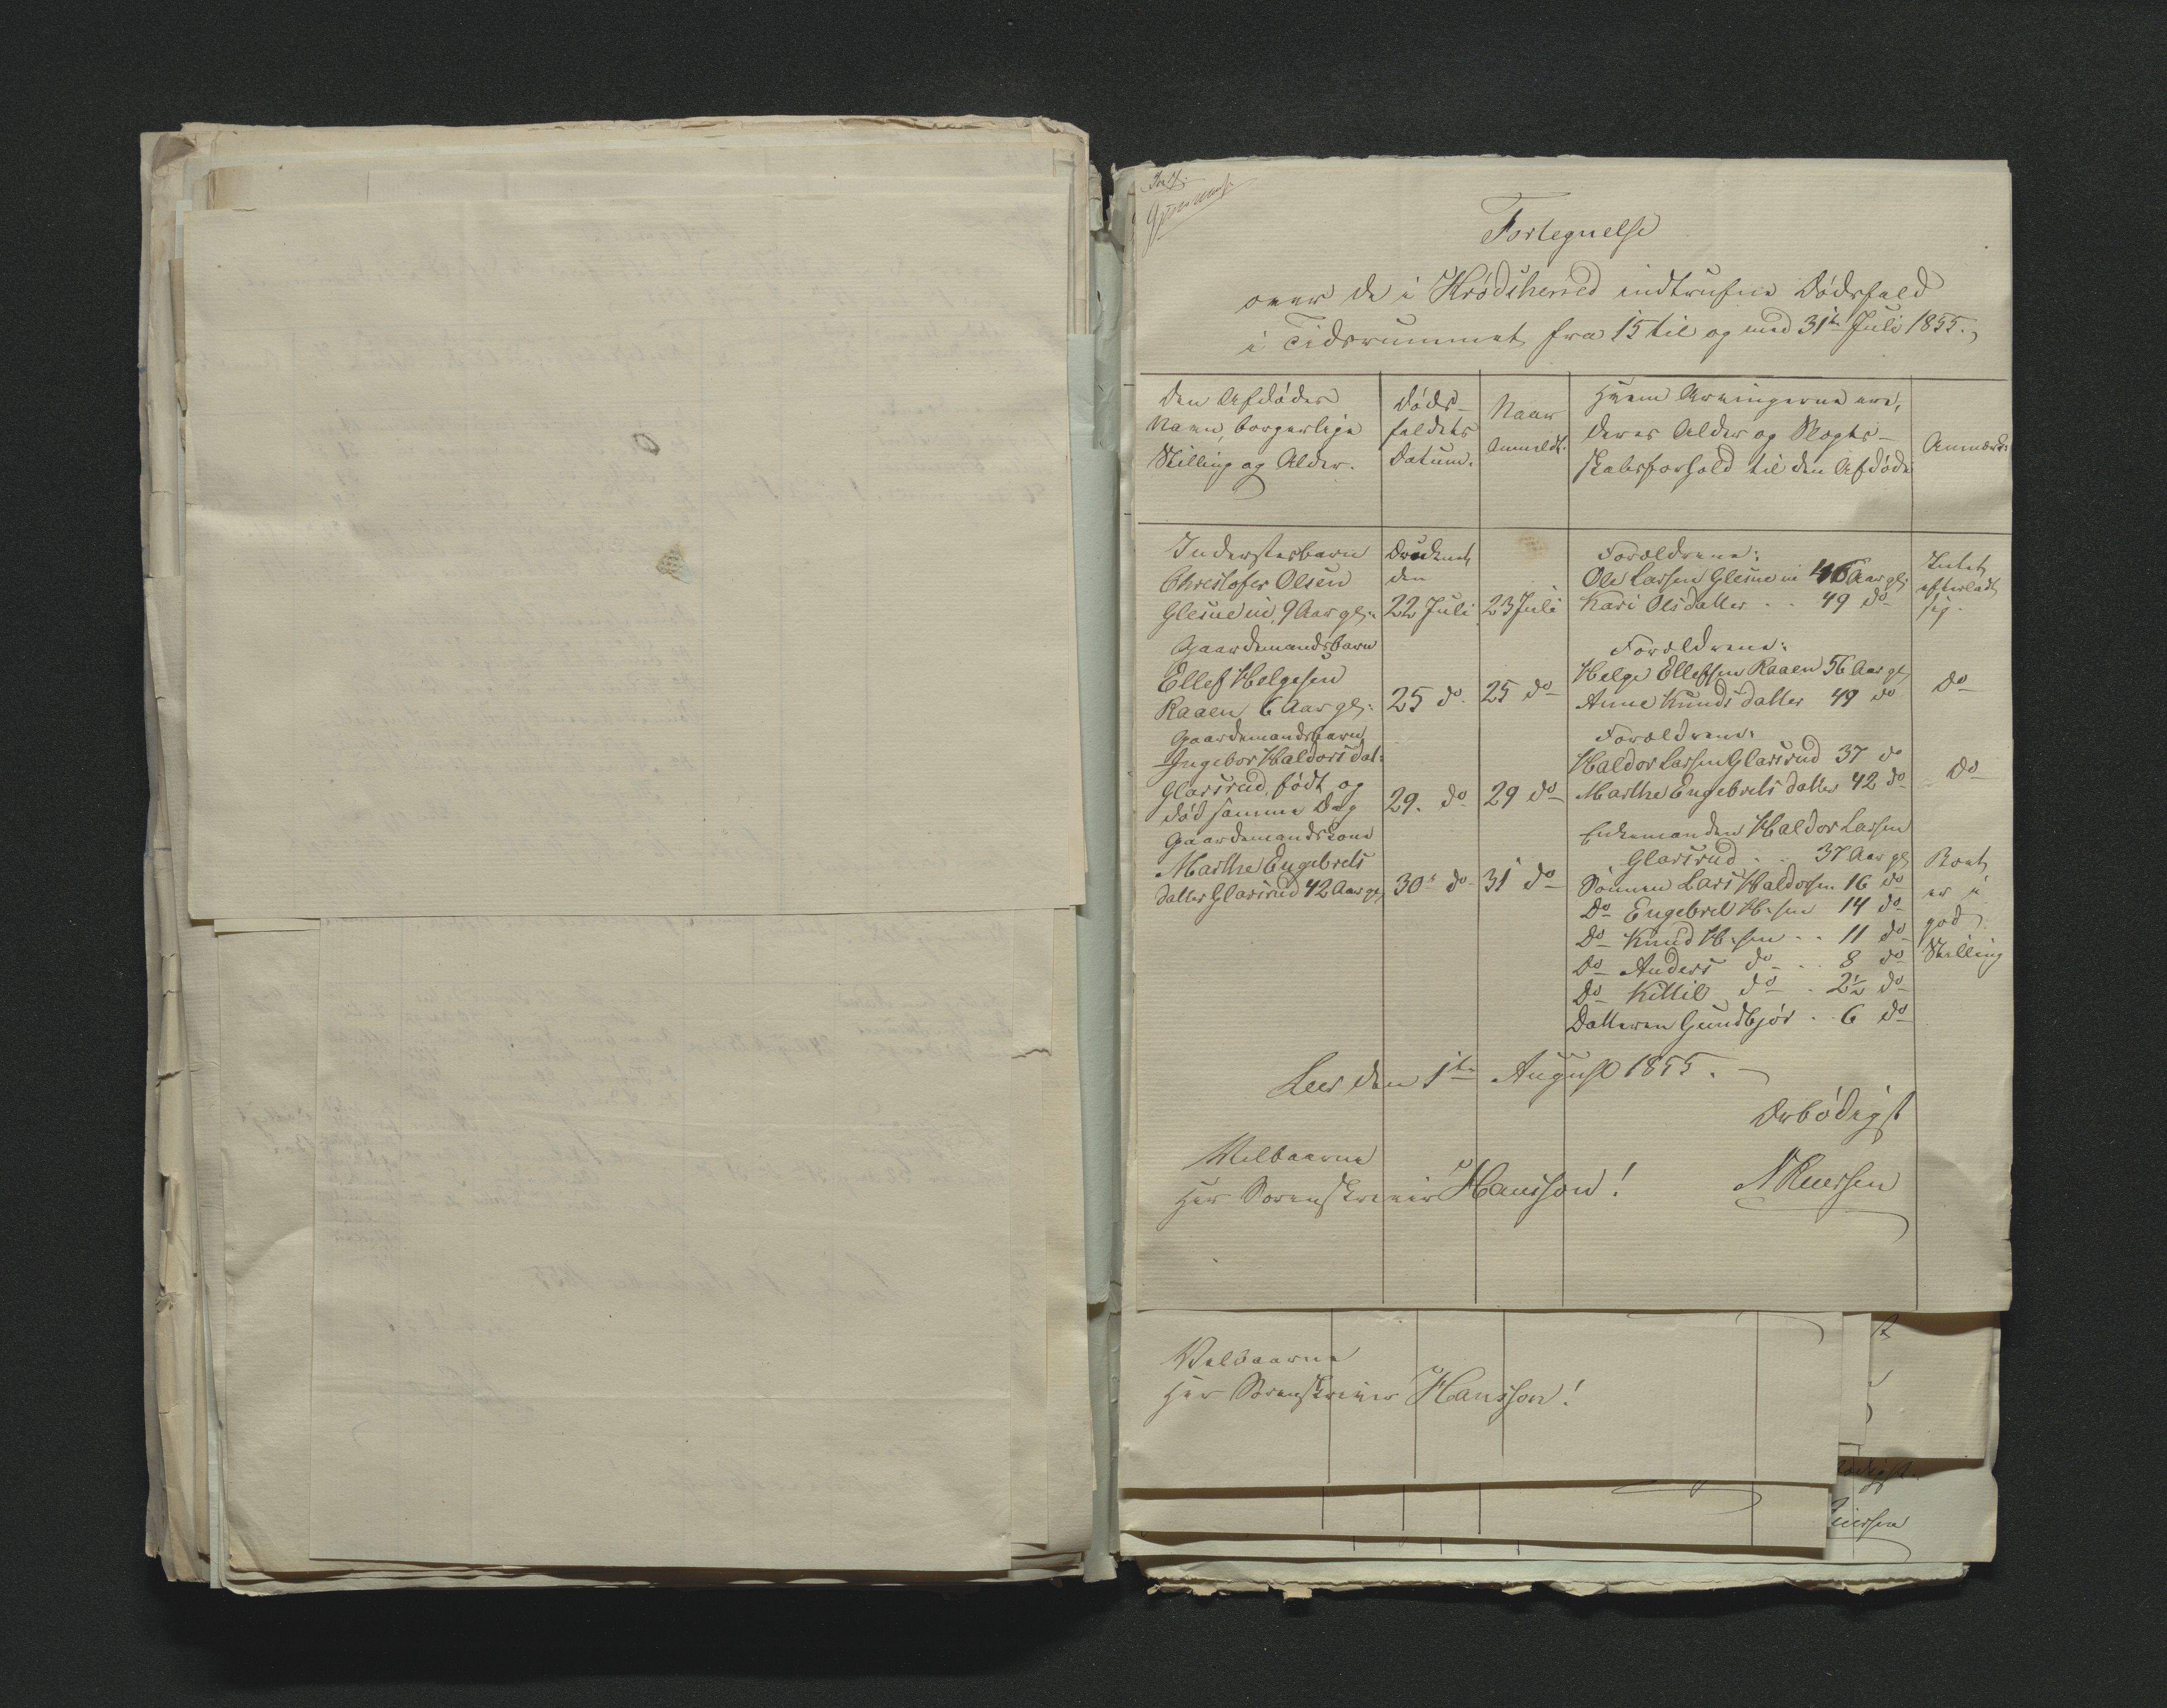 Fortegnelse
over de i Krødsherred indtrufne Dødsfald
i Tidsrummet fra 15 til og med 31te Juli 1855.
Den Afdødes
Navn, borgerlige
Stilling og Alder.
Døds-
faldets
Datum.
Naar
Anmeldt.
Hvem Arvingerne ere,
deres Alder og Slægts-
skabsforhold til den Afdøde
Anmærk:
Inderstesbarn
Christofer Olsen
Glesne ei, 9 Aar gl:
Druknet
den
22 Juli
23 Juli
Forældrene:
Ole Larsen Glesne ei 46 Aar gl:
Kari Olsdatter . . 49 do
Intet
efterladt
sig.
Gaardmandsbarn
Ellef Helgesen
Raaen 6 Aar gl:
25 do
25 do
Forældrene:
Helge Ellefsen Raaen 56 Aar gl
Anne Knudsdatter 49 do
do
Gaardemandsbarn
Ingebor Haldorsdat:
Glasrud, født og
død samme Dag
29. do
29 do
Forældrene:
Haldor Larsen Glasrud 37 do
Marthe Engebretsdatter 42 do
do
Gaardemandskone
Marthe Engebrets
datter Glasrud 42 Aar gl,
30 do
31 do
Enkemanden Haldor Larsen
Glasrud . . 37 Aar gl
Sønnen Lars Haldorsen 16 do
Do Engebret H.sen 14 do
Do Knud H.sen . . 11 do
Do Anders do . . 8 do
Do Kittil do . 2½ do
Datteren Gundbjør . . 6 do
Boet
er i
god
Stilling
Leer den 1te August 1855.
Ærbødigst
Velbaarne
Herr Sorenskriver Hansson!
Velbaarne
Herr Sorenskriver Hansson!